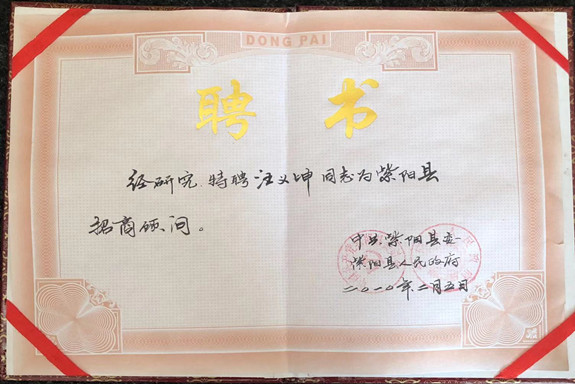 DONG PAI
聘书
经研究，特聘汪义坤同志为紫阳县
招商顾问。
中共紫阳县委
紫阳县人民政府
二〇一〇年二月五日